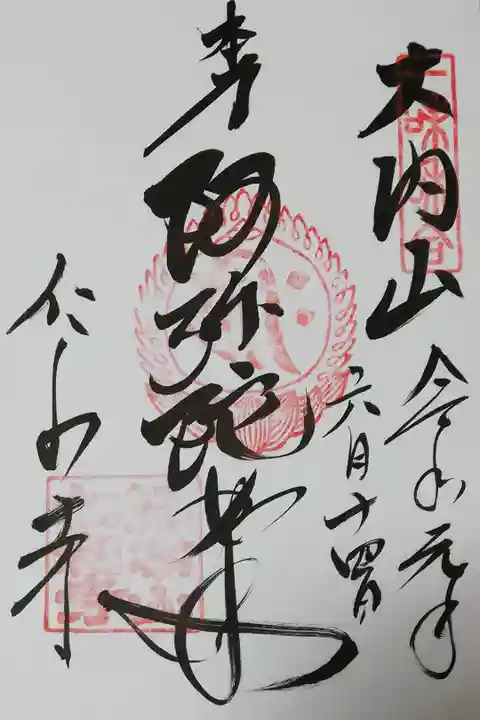 大内山
令和元年
六月十四日
奉
阿弥陀如来
仁和寺